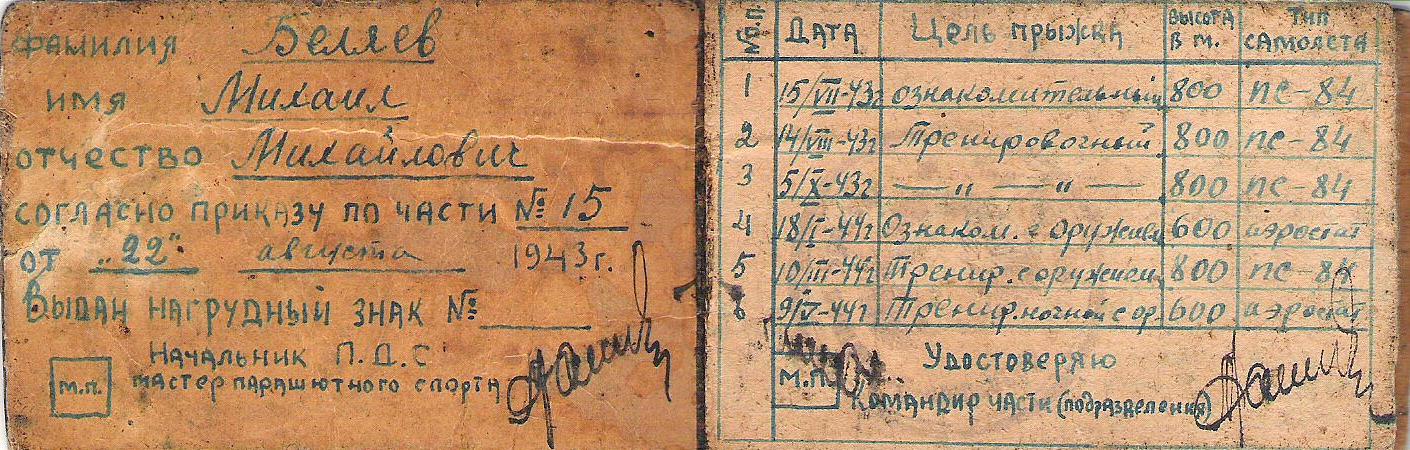 Фамилия Беляев
имя Михаил
отчество Михайлович
согласно приказу по части № 15
от "22" августа 1943 г.
Выдан нагрудный знак №
Начальник П.Д.С
м.п. мастер парашютного спорта
№ п.п. Дата Цель прыжка Высота в м. Тип самолета
1 15/VII-43г ознакомительный 800 ПС-84
2 14/VIII-43г Тренировочный 800 ПС-84
3 5/X-43г — " — " — 800 ПС-84
4 18/I-44г Ознаком. с оружием 600 аэростат
5 10/III-44г Тренир. с оружием 800 ПС-84
6 9/V-44г Тренир. ночной с ор. 600 аэростат
Удостоверяю
м.п. Командир части (подразделения)